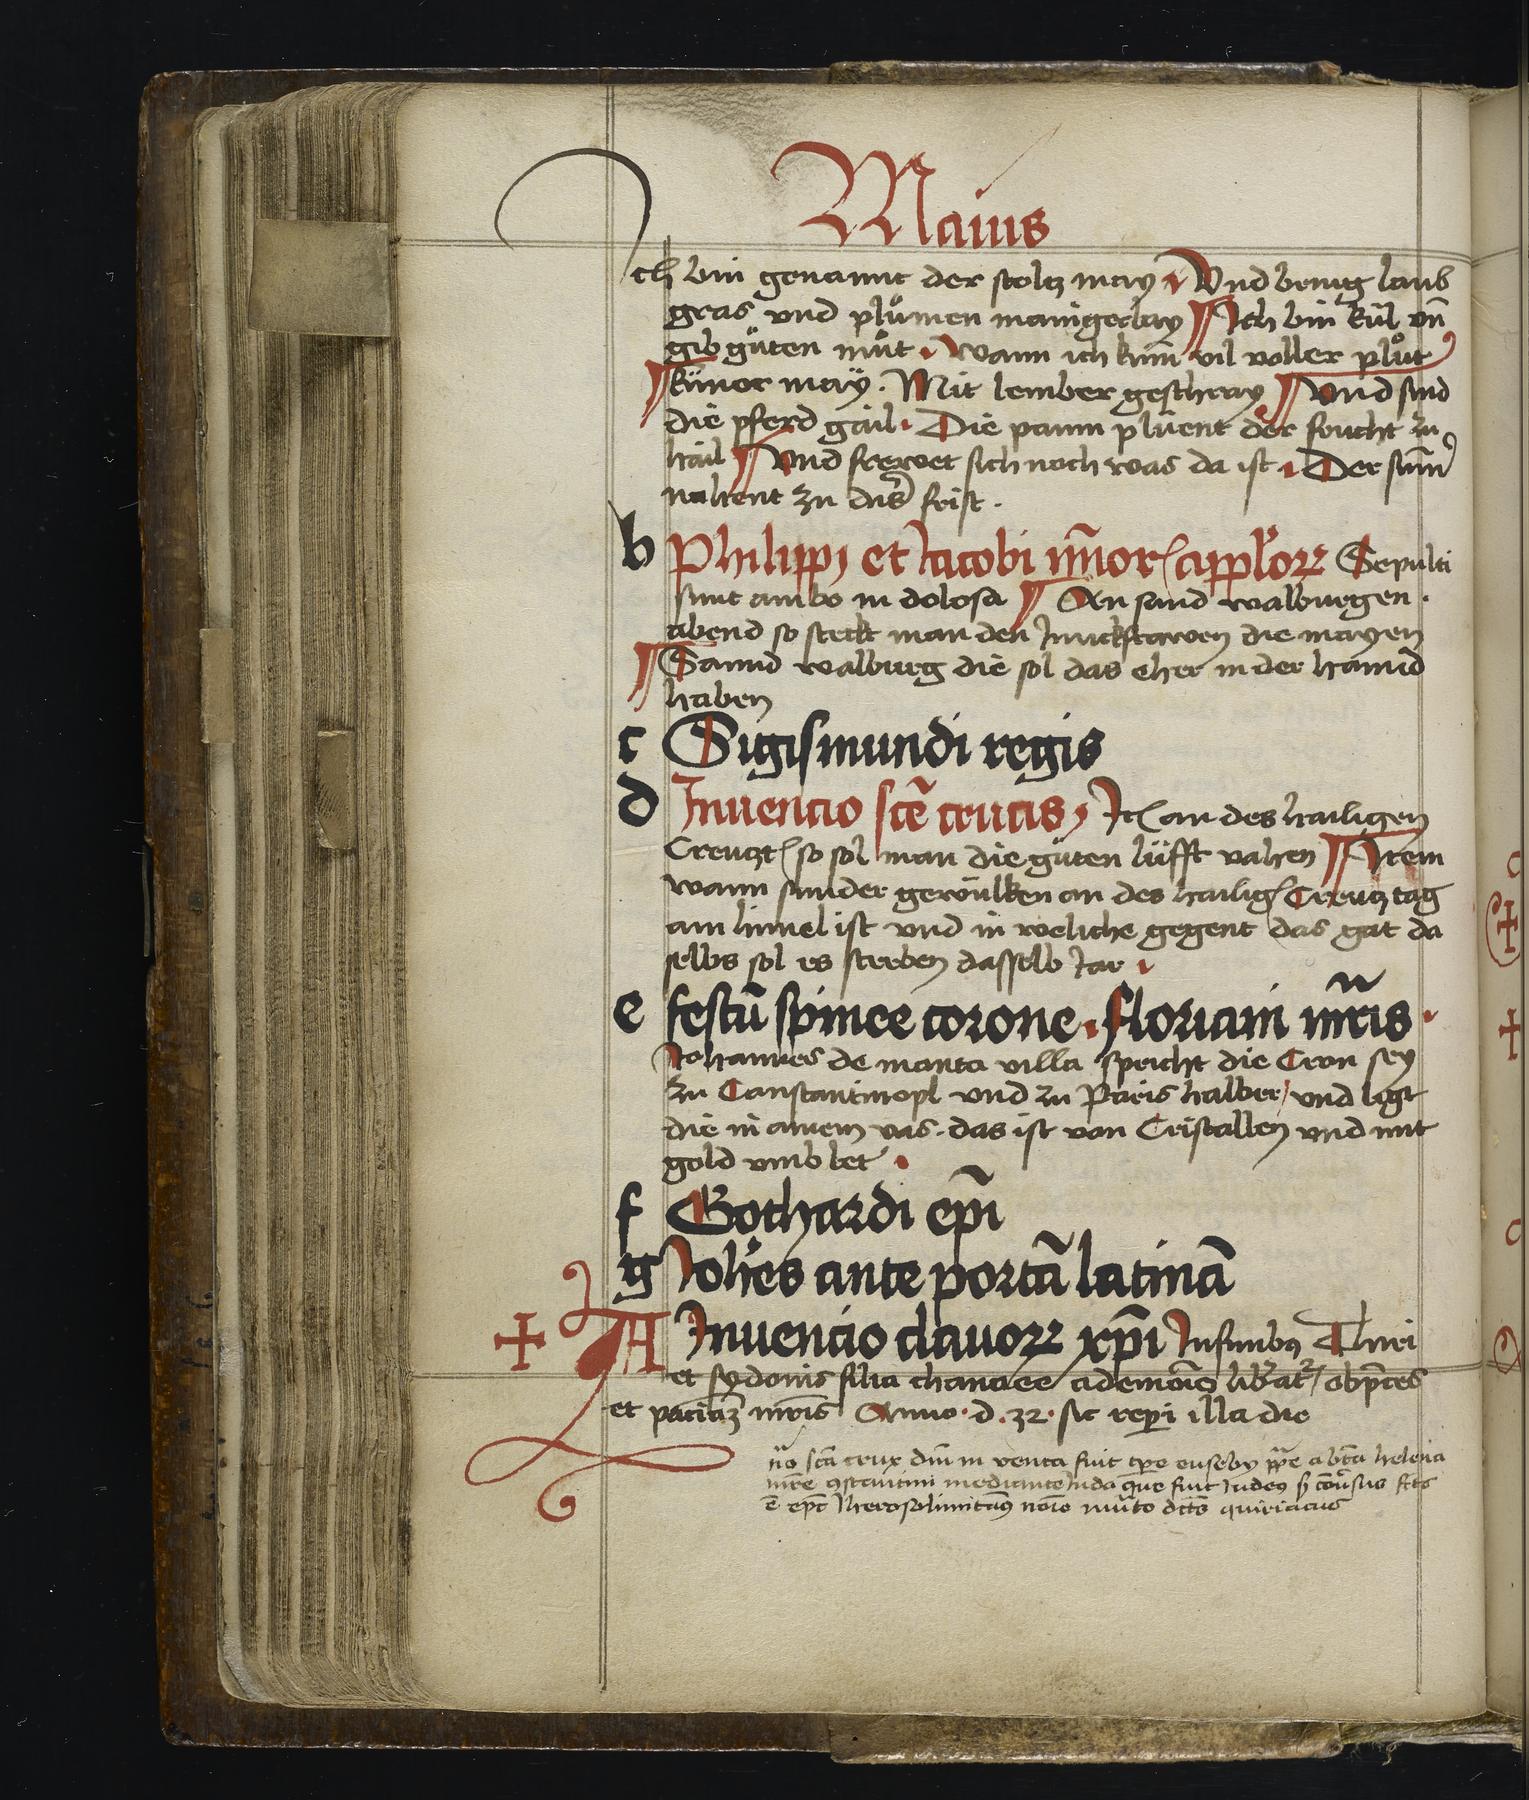 Maius
Ich bin genannt der stoltz may Vnd bring laub
gras vnd plůmen maingerlay Ich bin kül vn̄
gib gůten můt. Wann ich kum vil voller plůt
küner maÿ. Mit lember geschray Vnd sind
die pferd gäil. Die paum plüent der frucht zu
häil Vnd frewet sich noch was da ist. Der sum̄
nahent zu dis frist.
b Philippi et Jacobi mīor applor Sepulti
sunt ambo in dolosa An sand walburgen.
abend so steckt man den die mayen
Sannd walburg die sol das eher in der hannd
haben
c Sigismundi regis
d Inuencio scē crucis It an des hailigen
Creutzt so sol man die gůten lüfft vahen Item
wann sunder gewülken an des hailig Creutz tag
am himel ist vnd inweliche gegent das gät da
selbs sol es sterben dasselb Jar
e festū spinee corone. Floriani mr̄is.
Johannes de manta villa spricht die Cron sey
zu Constantinopl vnd zu Paris halber, vnd ligt
die in ainem vas. das ist von Cristallen vnd mit
gold vmb let
f Gothardi ep̄i
g Joh̄es ante portā latinā
A Inuencio clauor xp̄i In finibus Thiri
et sydonis filia chananee a demonio lib̄at, obp̄ces
et pacia mr̄is Anno. d. 32. sic rep̄i illa die
scā crux dn̄i in venta fuit tp̄e euseby pp̄e a bt̄a helena
mr̄e 9stantini mediante Juda que fuit Judeus
ē ep̄c Iherosolimitanus noīe dcts quiriacus